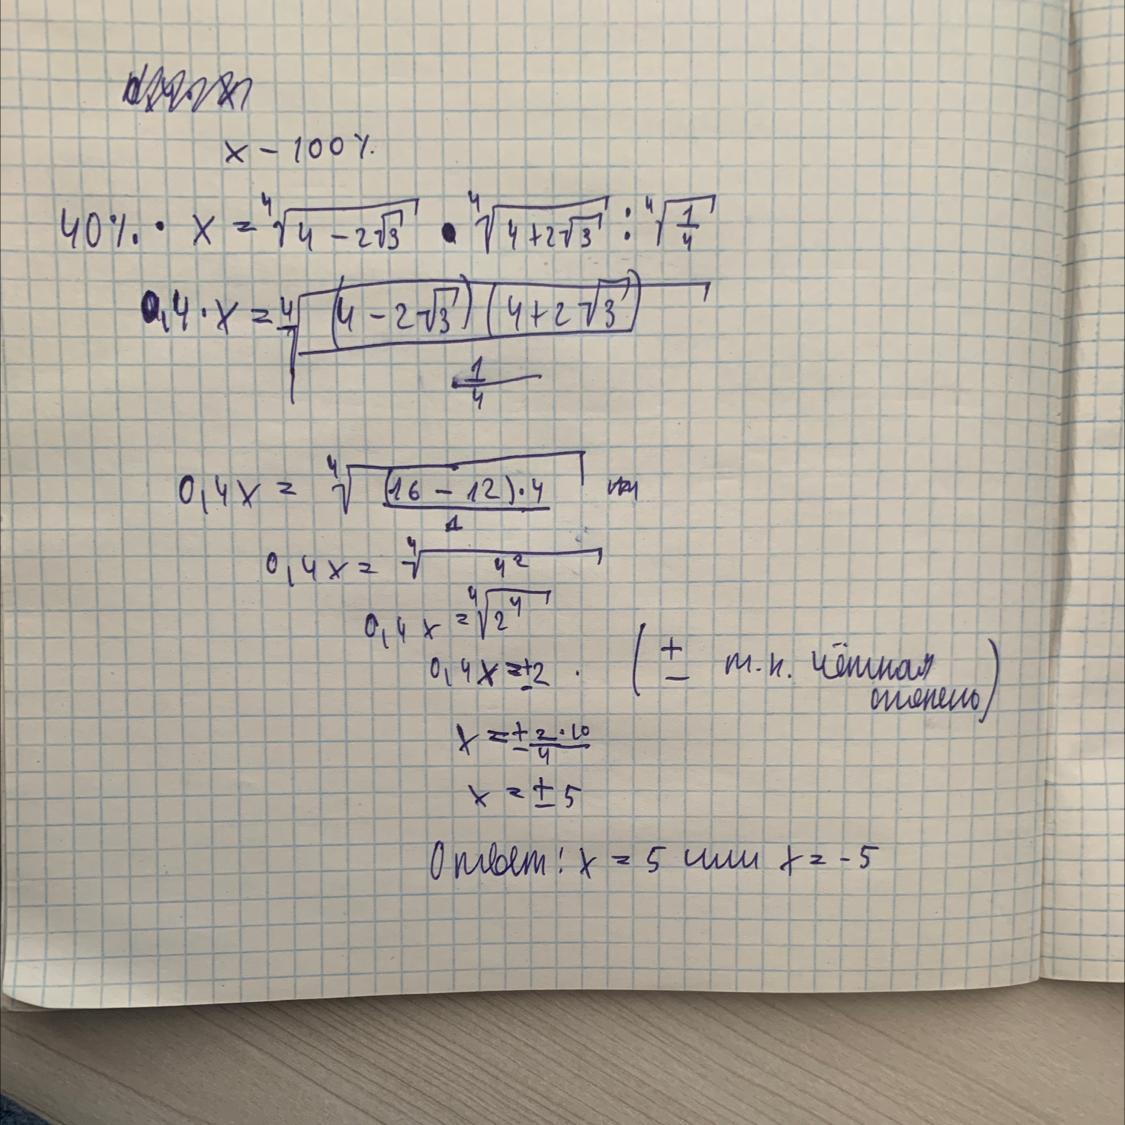 x – 100%.
40% · x = ⁴√(4 – 2√3) · ⁴√(4+2√3) : ⁴√(1/4)
0,4 · x = ⁴√((4 – 2√3)(4+2√3) / (1/4))
0,4x = ⁴√((16 – 12)·4 / 1)
0,4x = ⁴√(4²)
0,4x = ⁴√(2⁴)
0,4x = ±2 . (± т.к. чётная
степень)
x = ± 2·10/4
x = ± 5
Ответ: x = 5 или x = -5